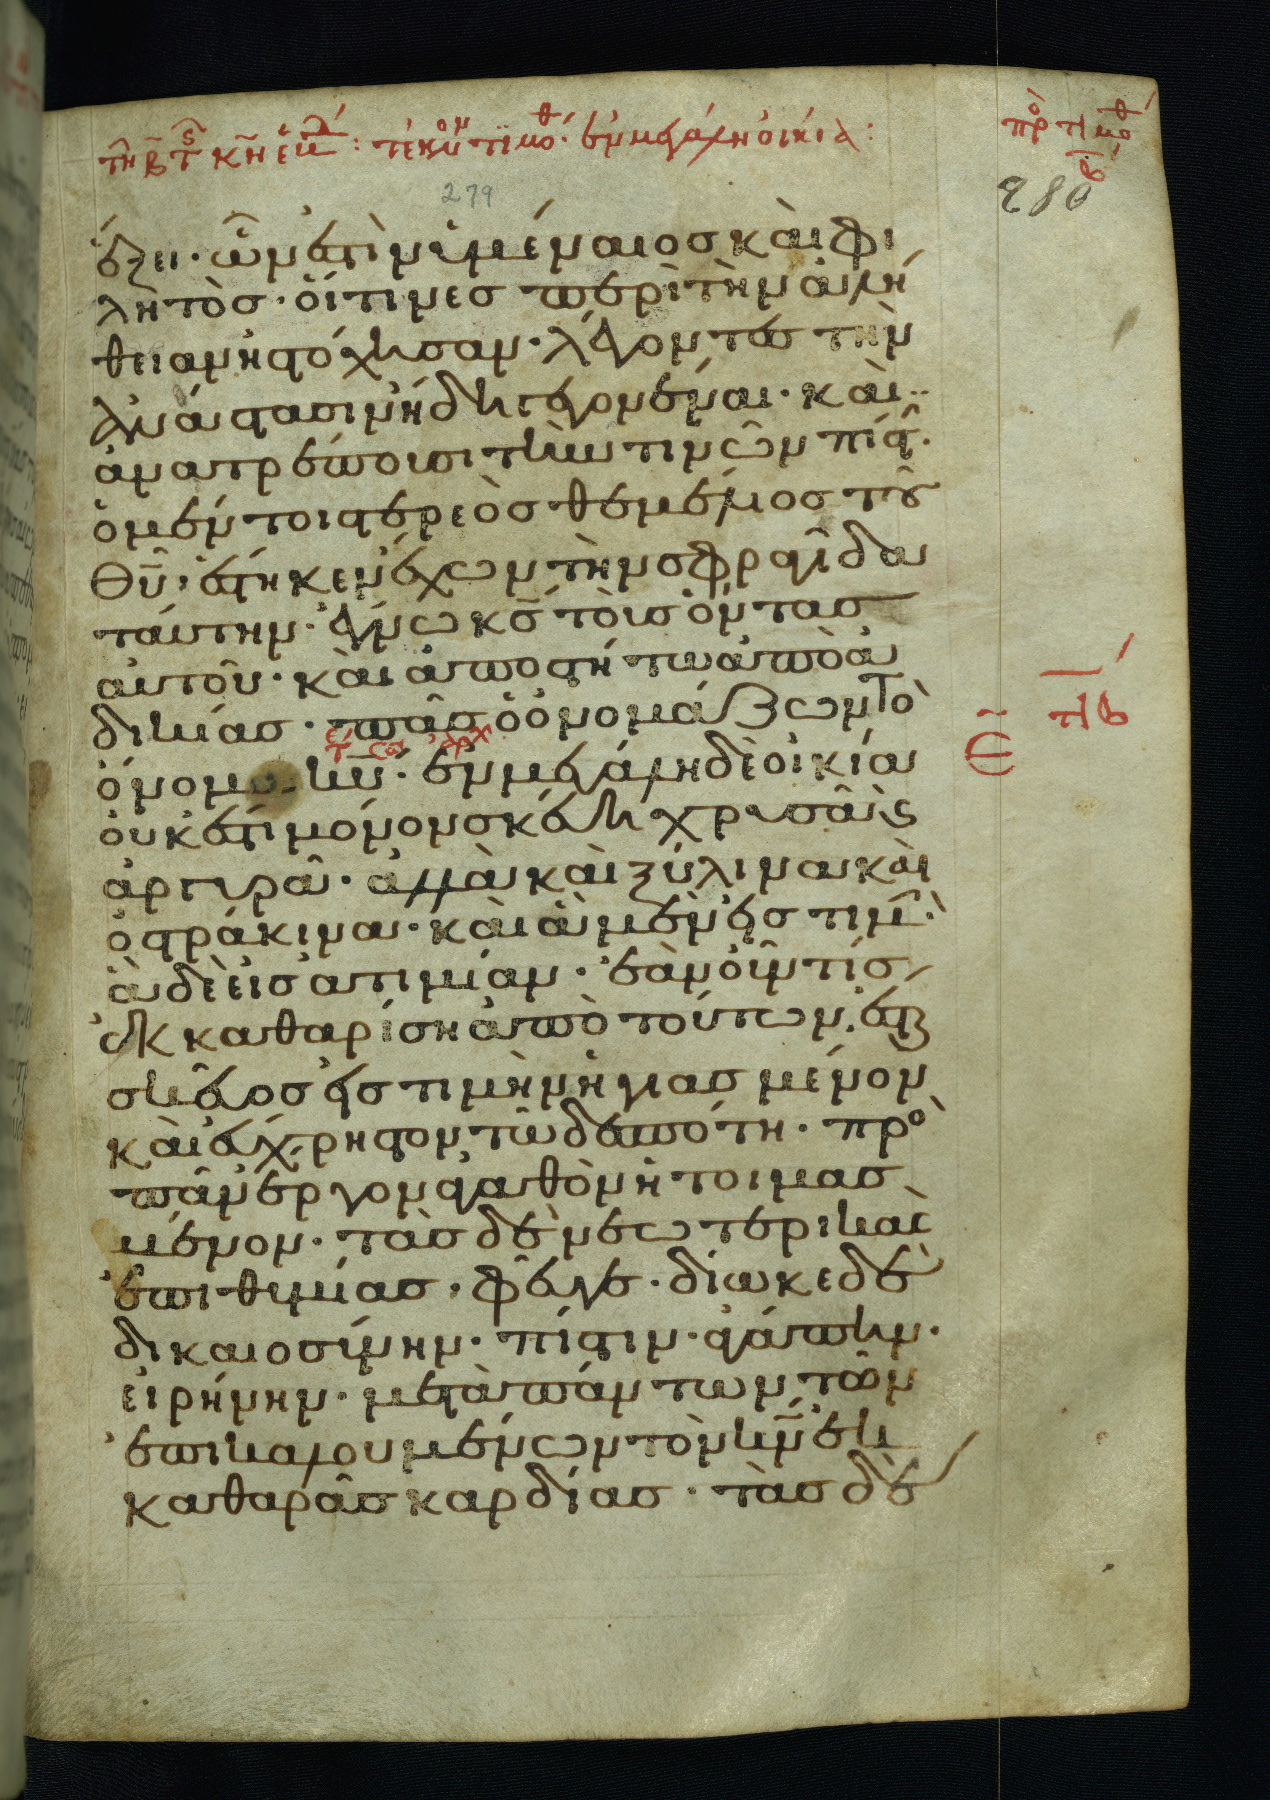 τῆ β τ ς κη ἑβδ : τέκνον τιμόθ. ἐν μεγάλη οἰκία :
πρὸ τιμόθ β
279
280
ἕξει · ὧν ἐστὶν ὑμέναιος καὶ φι
λητὸς · οἵτινες περὶ τὴν ἀλή
θειαν ἠστόχησαν · λέγοντες τὴν
ἀνάστασιν ἤδη γεγονέναι · καὶ
ἀνατρέπουσι τήν τινῶν πίστ̂ ·
ὁ μέντοι στερεὸς θεμέλιος τοῦ
θ̅υ̅ · ἕστηκεν ἔχων τὴν σφραγῖδα
ταύτην · ἔγνω κ̅ς̅ τοὺς ὄντας
αὐτοῦ · καὶ ἀποστήτω ἀπὸ ἀ
δικίας · πᾶς ὁ ὀνομάζων τὸ
ὄνομα κ̅υ̅ · ἐν μεγάλη δὲ οἰκία
οὐκ ἔστι μόνον σκεύη χρυσᾶ ϗ
ἀργυρᾶ · ἀλλὰ καὶ ξύλινα καὶ
ὀστράκινα · καὶ ἃ μὲν εἰς τιμὴ̂ ·
ἃ δὲ εἰς ἀτιμίαν · ἐὰν οὖν τίς
ἐκκαθαρίση ἀπὸ τούτων, ἔστ
σκεῦος εἰς τιμὴν ἡγιασμένον
καὶ εὔχρηστον τῶ δεσπότη · πρὸ
πᾶν ἔργον ἀγαθὸν ἡτοιμασ
μένον · τὰς δὲ νεωτερικὰς
ἐπιθυμίας · φεῦγε · δίωκε δὲ
δικαιοσύνην · πίστιν · ἀγάπην ·
εἰρήνην · μετὰ πάντων τῶν
ἐπικαλουμένων τὸν κ̅ν̅ ἐκ
καθαρᾶς καρδίας · τὰς δὲ